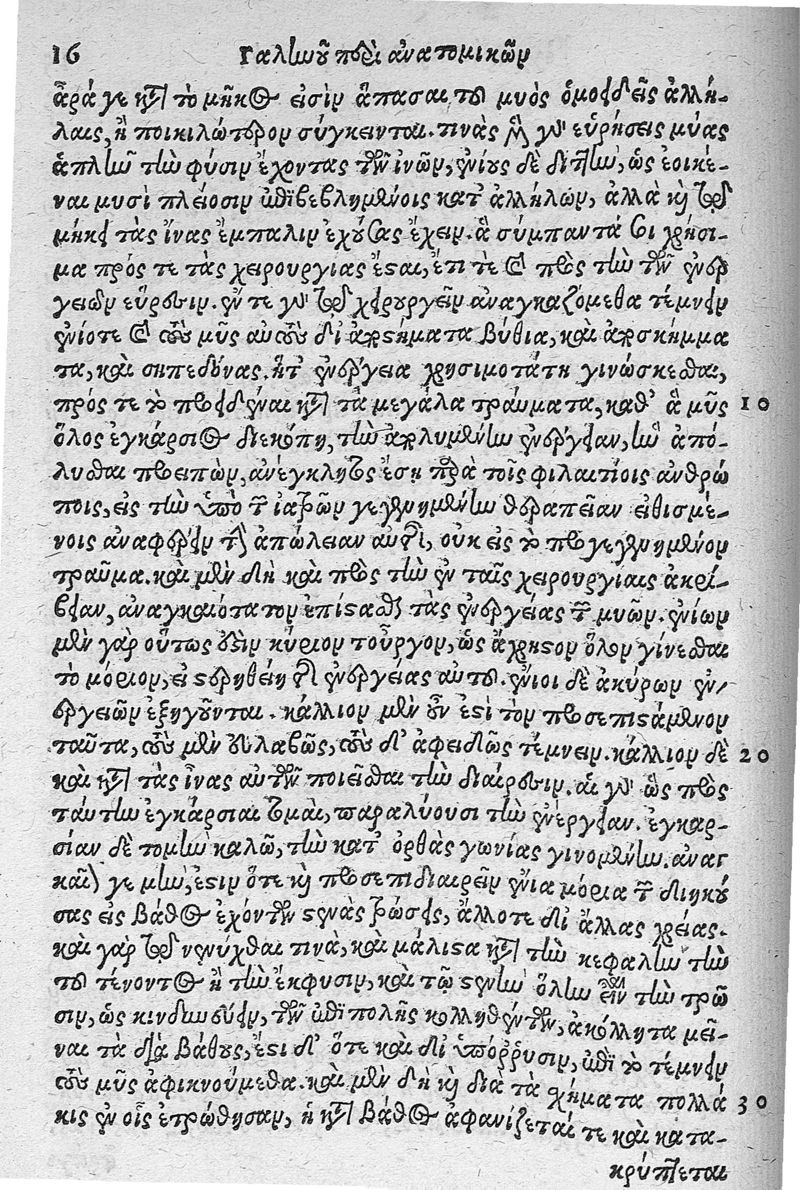 16 Γαληνοῦ περὶ ἀνατομικῶν
ἆρά γε κατὰ τὸ μῆκος εἰσὶν ἅπασαι τοῦ μυὸς ὁμοειδεῖς ἀλλή-
λαις, ἢ ποικιλώτερον σύγκεινται. τινὰς μὲν γὰρ εὑρήσεις μύας
ἁπλῆν τὴν φύσιν ἔχοντας τῶν ἰνῶν, ἐνίους δὲ διττὴν, ὡς ἐοικέ-
ναι μυσὶ πλείοσιν ἐπιβεβλημένοις κατ' ἀλλήλων, ἀλλὰ καὶ τῷ
μήκει τὰς ἶνας ἔμπαλιν ἐχούσας ἔχειν. ἃ σύμπαντά σοι χρήσι-
μα πρός τε τὰς χειρουργίας ἔσται, ἔτι τε καὶ πρὸς τὴν τῶν ἐνερ
γειῶν εὕρεσιν. ἔν τε γὰρ τῷ χειρουργεῖν ἀναγκαζόμεθα τέμνειν
ἐνίοτε καὶ τοὺς μῦς αὐτοὺς δι' ἀποστήματα βύθια, καὶ ἀποσκήμμα
τα, καὶ σηπεδόνας. ἥτ' ἐνέργεια χρησιμοτάτη γινώσκεσθαι,
πρός τε τὸ προειδέναι κατὰ τὰ μεγάλα τραύματα, καθ' ἃ μῦς 10
ὅλος ἐγκάρσιος διεκόπη, τὴν ἀπολυμένην ἐνέργειαν, ἣν ἀπό-
λυσθαι προειπὼν, ἀνέγκλητος ἔσῃ παρὰ τοῖς φιλαιτίοις ἀνθρώ
ποις, εἰς τὴν ὑπὸ τῶν ἰατρῶν γεγενημένην θεραπείαν εἰθισμέ-
νοις ἀναφέρειν τὴν ἀπώλειαν αὐτῆς, οὐκ εἰς τὸ προγεγενημένον
τραῦμα. καὶ μὲν δὴ καὶ πρὸς τὴν ἐν ταῖς χειρουργίαις ἀκρί-
βειαν, ἀναγκαιότατον ἐπίστασθαι τὰς ἐνεργείας τῶν μυῶν. ἐνίων
μὲν γὰρ οὕτως ἐστὶν κύριον τοὖργον, ὡς ἄχρηστον ὅλον γίνεσθαι
τὸ μόριον, εἰ στερηθείη τῆς ἐνεργείας αὐτοῦ. ἔνιοι δὲ ἀκύρων ἐν-
εργειῶν ἐξηγοῦνται. κάλλιον μὲν οὖν ἐστὶ τὸν προσεπιστάμενον
ταῦτα, τοὺς μὲν εὐλαβῶς, τοὺς δ' ἀφειδῶς τέμνειν. κάλλιον δὲ 20
καὶ κατὰ τὰς ἶνας αὐτῶν ποιεῖσθαι τὴν διαίρεσιν. αἱ γὰρ ὡς πρὸς
ταύτην ἐγκάρσιαι τομαὶ, παραλύουσι τὴν ἐνέργειαν. ἐγκαρ-
σίαν δὲ τομὴν καλῶ, τὴν κατ' ὀρθὰς γωνίας γινομένην. ἀναγ
καῖον γε μὴν, ἔστιν ὅτε καὶ προσεπιδιαιρεῖν ἔνια μόρια τῶν διηκού
σας εἰς βάθος ἐχόντων στενὰς τρώσεις, ἄλλοτε δι' ἄλλας χρείας.
καὶ γὰρ τῷ νενύχθαι τινὰ, καὶ μάλιστα κατὰ τὴν κεφαλὴν τὴν
τοῦ τένοντος ἢ τὴν ἔκφυσιν, καὶ τῷ στενὴν ὅλην εἶναι τὴν τρῶ
σιν, ὡς κινδυνεύειν, τῶν ἐπιπολῆς κολληθέντων, ἀκόλλητα μεῖ-
ναι τὰ διὰ βάθους, ἔστι δ' ὅτε καὶ δι' ὑπόῤῥυσιν, ἐπὶ τὸ τέμνειν
τοὺς μῦς ἀφικνούμεθα. καὶ μὲν δὴ καὶ διὰ τὰ σχήματα πολλά 30
κις ἐν οἷς ἐτρώθησαν, ἢ κατὰ βάθος ἀφανίζεταί τε καὶ κατα-
κρύπτεται